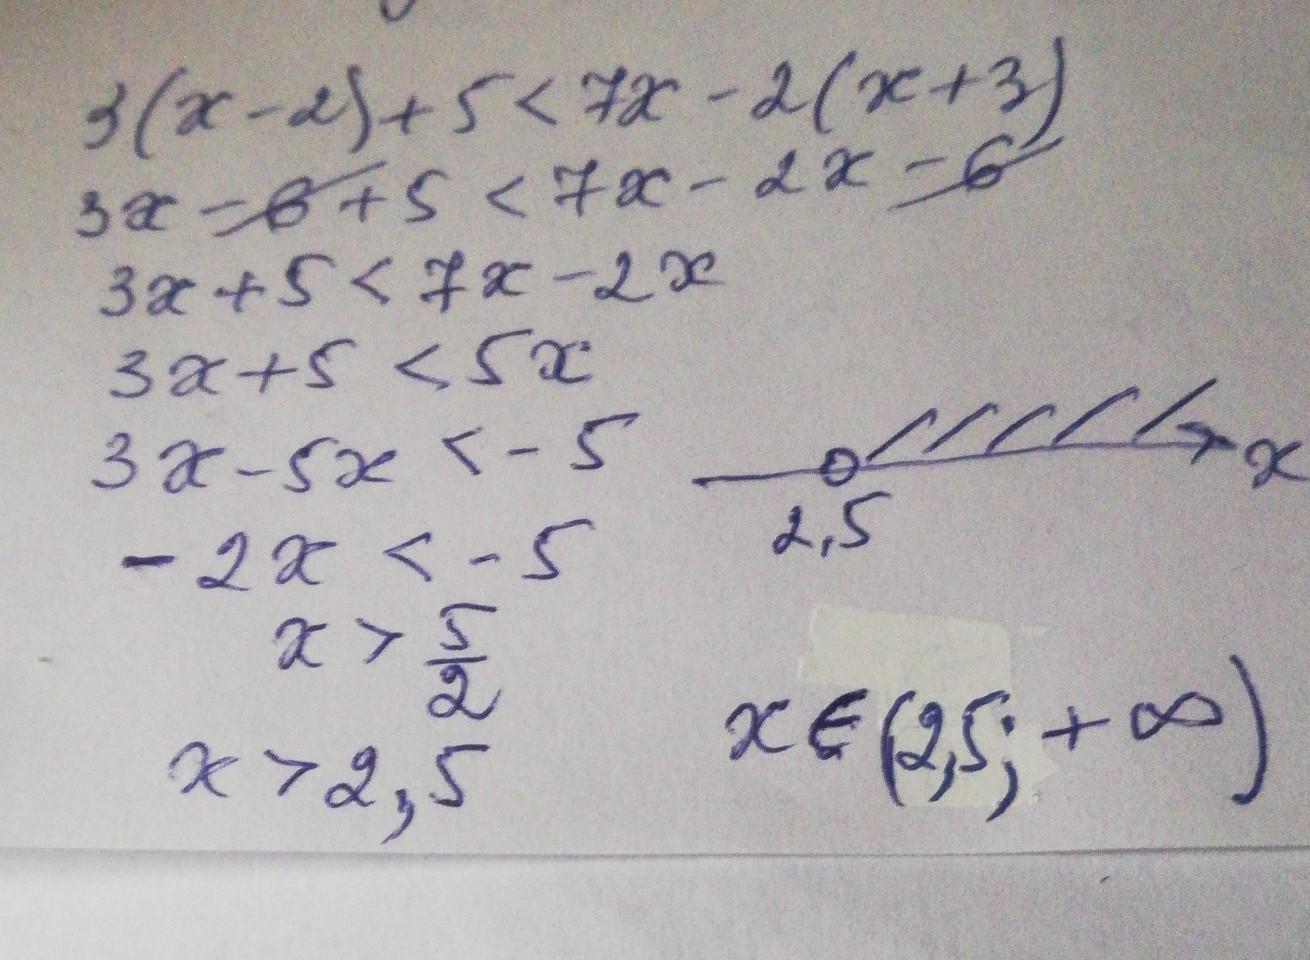 3(x-2)+5<7x-2(x+3)
3x-6+5<7x-2x-6
3x+5<7x-2x
3x+5<5x
3x-5x<-5
-2x<-5
x>5/2
x>2,5
2,5
x
x∈(2,5;+∞)